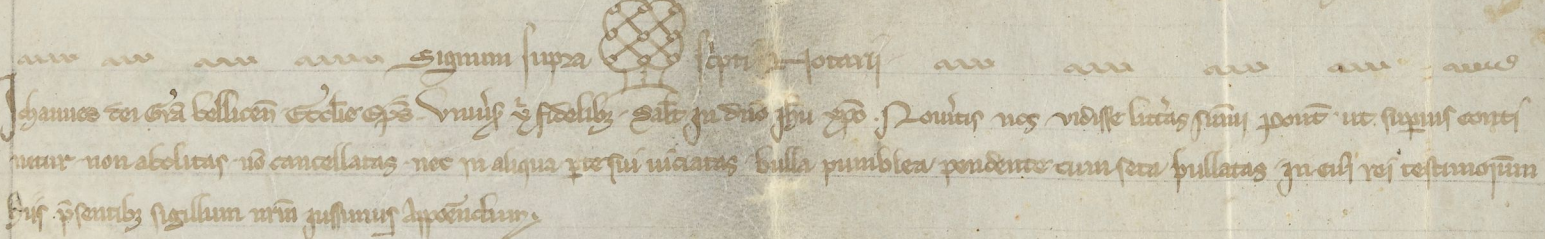 Signum supra scpti Notarii
Johannes dei Gra bellicen Ecclie Eps Univsis xpi fidelibz Salt in dno Jhu xpo. Novitis nos vidisse litteras sumi pont ut supius conti
netur non abolitas no cancellatas nec in aliqua pte sui viciatas bulla pumblea pendente cum seta bullatas in cuis rei testimonium
hiis psentibz sigillum nrm jussimus Appendum